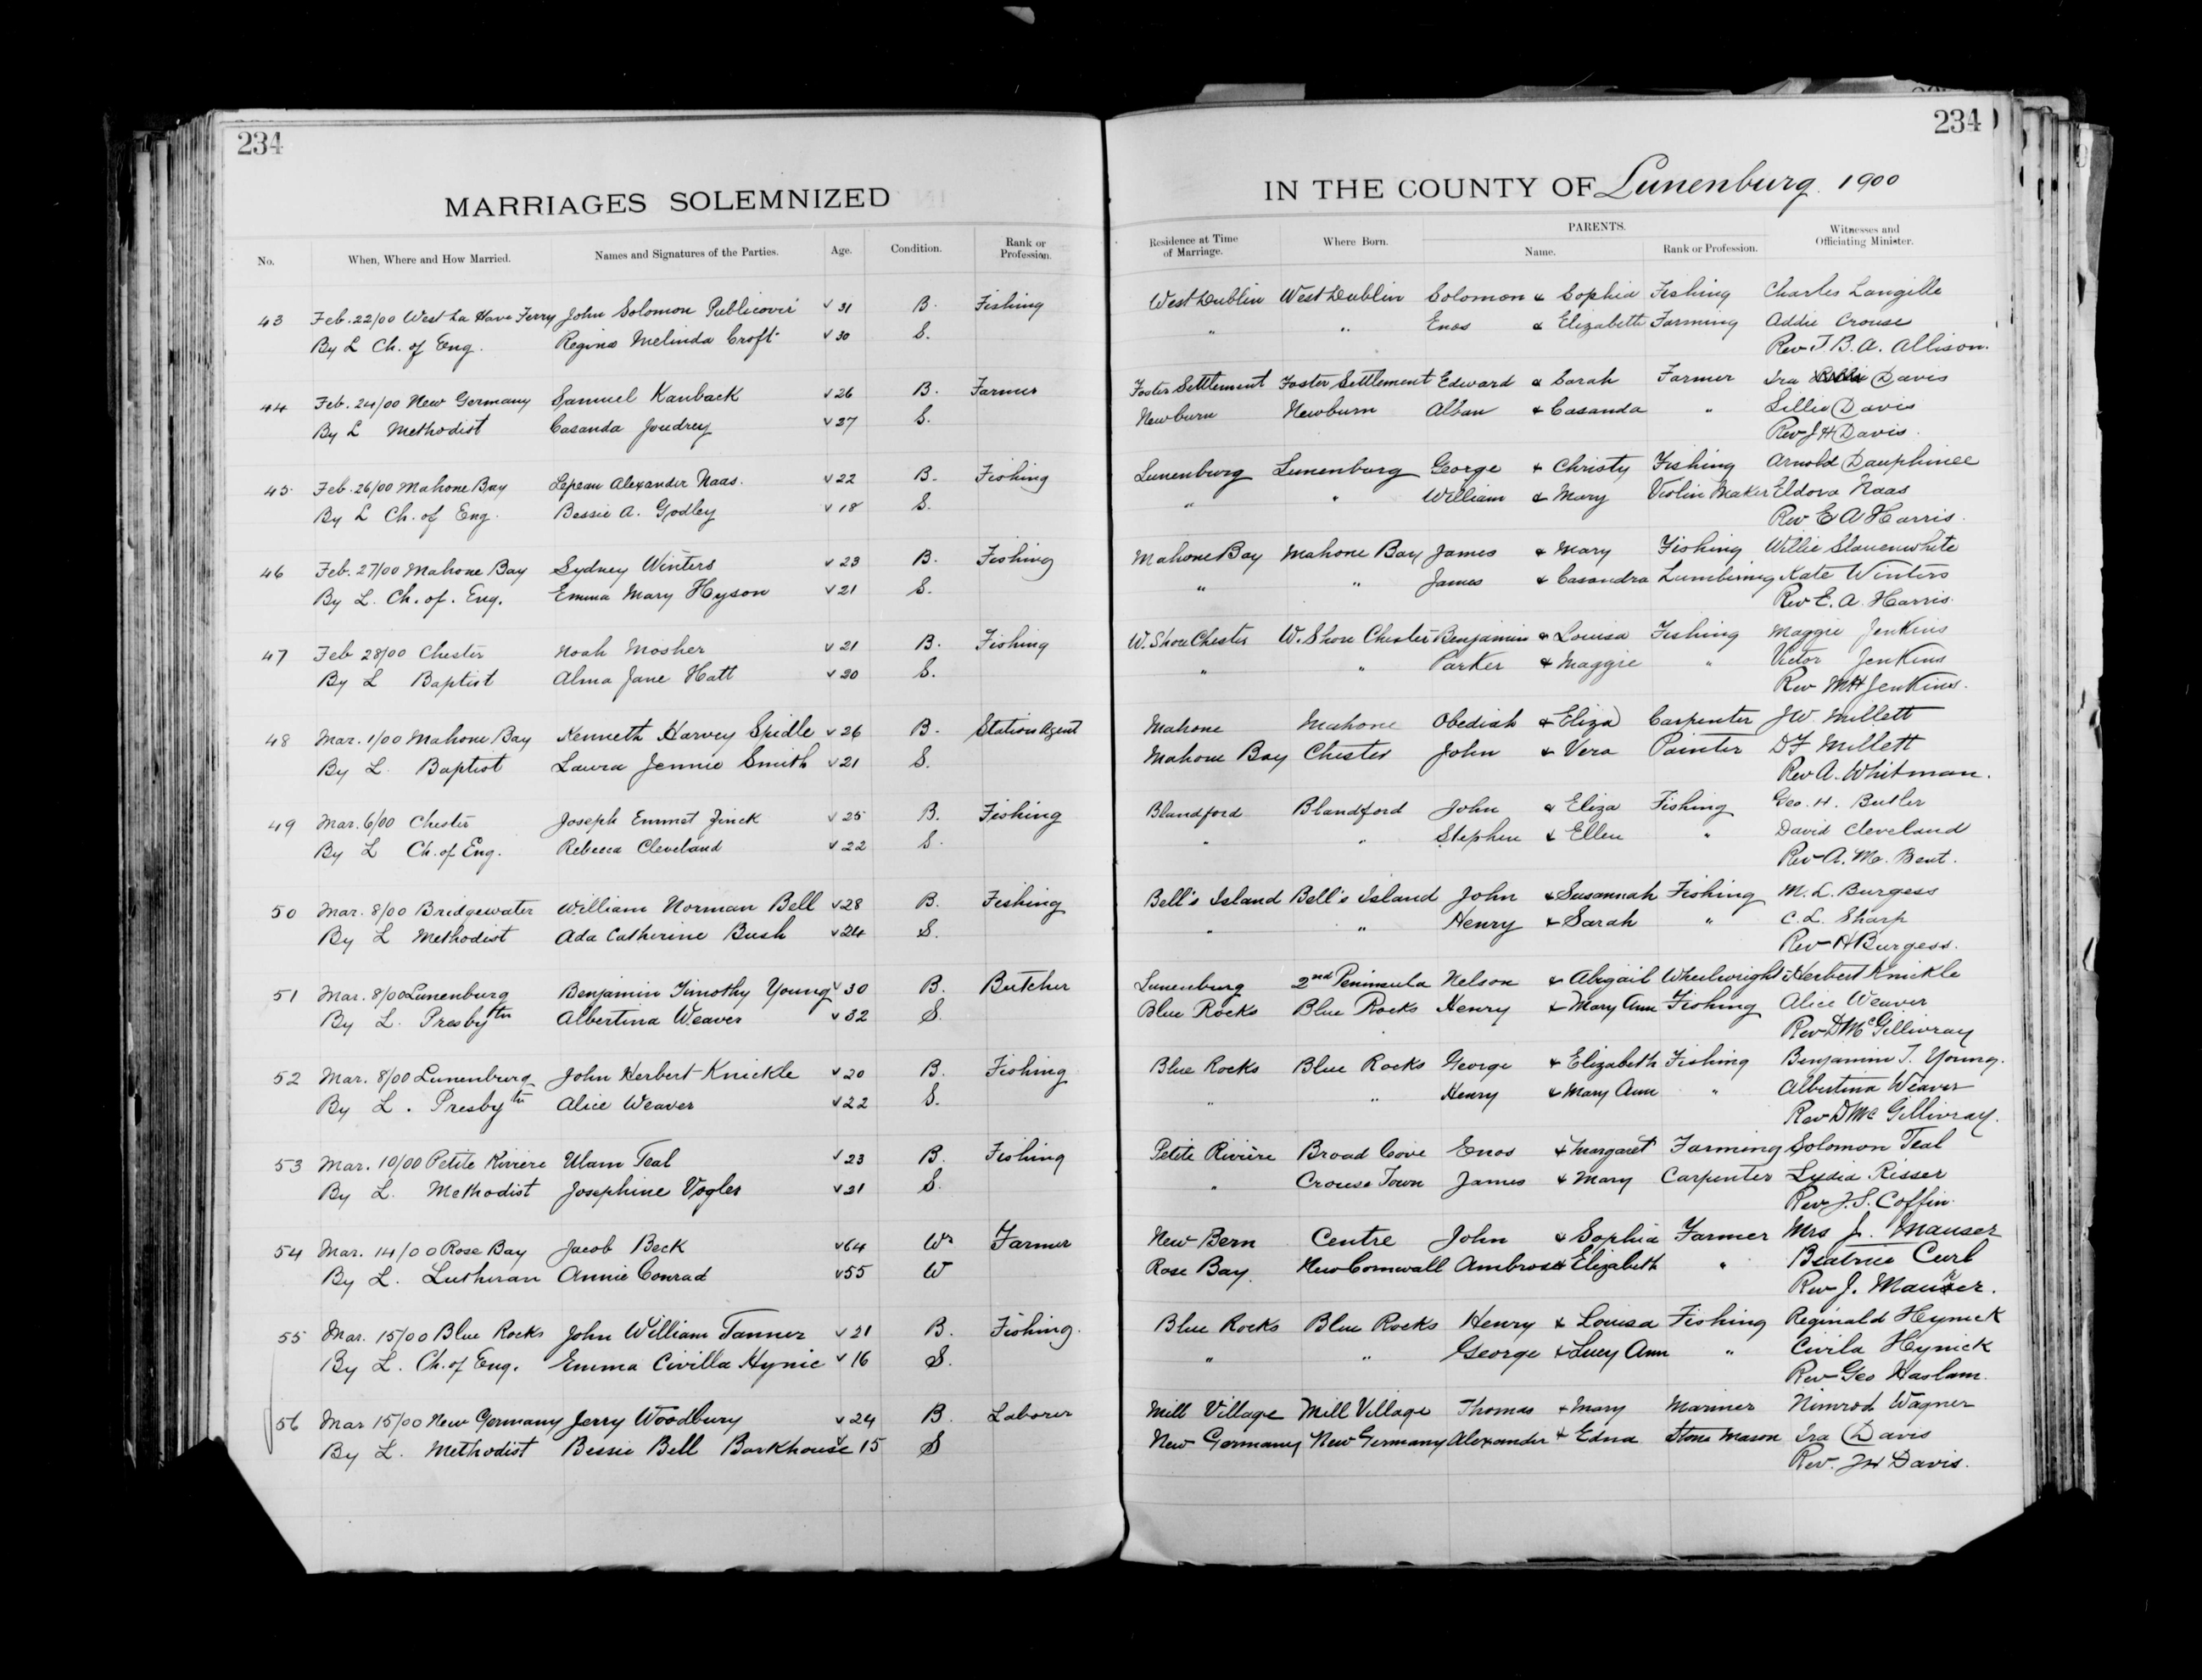 234
234
MARRIAGES SOLEMNIZED IN THE COUNTY OF Lunenburg 1900
No. When, Where and How Married. Names and Signatures of the Parties. Age. Condition. Rank or Profession. Residence at Time of Marriage. Where Born. PARENTS. Name. Rank or Profession. Witnesses and Officiating Minister.
43 Feb. 22/00 West La Have Ferry John Solomon Publicover v 31 B. Fishing West Dublin West Dublin Solomon & Sophia Fishing Charles Langille
By L Ch. of Eng. Regina Melinda Croft v 30 S. " " Enos & Elizabeth Farming Addie Crouse
Rev T. B. A. Allison.
44 Feb. 24/00 New Germany Samuel Kaulback v 26 B. Farmer Foster Settlement Foster Settlement Edward & Sarah Farmer Ira Davis
By L Methodist Casanda Joudrey v 27 S. Newburn Newburn Alban & Casanda " Lillie Davis
Rev J H Davis.
45 Feb. 26/00 Mahone Bay Lepean Alexander Naas. v 22 B. Fishing Lunenburg Lunenburg George & Christy Fishing Arnold Dauphinee
By L Ch. of Eng. Bessie A. Godley v 18 S. " " William & Mary Violin Maker Eldora Naas
Rev E A Harris.
46 Feb. 27/00 Mahone Bay Sydney Winters v 23 B. Fishing Mahone Bay Mahone Bay James & Mary Fishing Willie Slauenwhite
By L. Ch. of. Eng. Emma Mary Hyson v 21 S. " " James & Casandra Lumbering Kate Winters
Rev E. A. Harris.
47 Feb 28/00 Chester Noah Mosher v 21 B. Fishing W. Shore Chester W. Shore Chester Benjamin & Louisa Fishing Maggie Jenkins
By L Baptist Alma Jane Hatt v 20 S. " " Parker & Maggie " Victor Jenkins
Rev M H Jenkins.
48 Mar. 1/00 Mahone Bay Kenneth Harvey Spidle v 26 B. Station Agent Mahone Mahone Obediah & Eliza Carpenter J W. Millett
By L. Baptist Laura Jennie Smith v 21 S. Mahone Bay Chester John & Vera Painter D F Millett
Rev A. Whitman.
49 Mar. 6/00 Chester Joseph Emmet Zinck v 25 B. Fishing Blandford Blandford John & Eliza Fishing Geo. H. Butler
By L Ch. of Eng. Rebecca Cleveland v 22 S. " " Stephen & Ellen " David Cleveland
Rev A. M. Bent.
50 Mar. 8/00 Bridgewater William Norman Bell v 28 B. Fishing Bell's Island Bell's Island John & Susannah Fishing M. L. Burgess
By L Methodist Ada Catherine Bush v 24 S. " " Henry & Sarah " C. L. Sharp
Rev H Burgess.
51 Mar. 8/00 Lunenburg Benjamin Timothy Young v 30 B. Butcher Lunenburg 2nd Peninsula Nelson & Abigail Wheelwright J Herbert Knickle
By L. Presbytn Albertina Weaver v 32 S. Blue Rocks Blue Rocks Henry & Mary Ann Fishing Alice Weaver
Rev D McGillivray
52 Mar. 8/00 Lunenburg John Herbert Knickle v 20 B. Fishing Blue Rocks Blue Rocks George & Elizabeth Fishing Benjamin T. Young.
By L. Presbytn Alice Weaver v 22 S. " " Henry & Mary Ann " Albertina Weaver
Rev D Mc Gillivray.
53 Mar. 10/00 Petite Riviere Ulam Teal v 23 B. Fishing Petite Riviere Broad Cove Enos & Margaret Farming Solomon Teal
By L. Methodist Josephine Vogler v 21 S. " Crouse Town James & Mary Carpenter Lydia Risser
Rev J. S. Coffin.
54 Mar. 14/00 Rose Bay Jacob Beck v 64 Wr Farmer New Bern Centre John & Sophia Farmer Mrs J. Mauser
By L. Lutheran Annie Conrad v 55 W Rose Bay. New Cornwall Ambrose & Elizabeth " Beatrice Curl
Rev J. Maurer.
55 Mar. 15/00 Blue Rocks John William Tanner v 21 B. Fishing. Blue Rocks Blue Rocks Henry & Louisa Fishing Reginald Hynick
By L. Ch. of Eng. Emma Civilla Hynic v 16 S. " " George & Lucy Ann " Civila Hynick
Rev Geo Haslam.
56 Mar 15/00 New Germany Jerry Woodbury v 24 B. Laborer Mill Village Mill Village Thomas & Mary Mariner Nimrod Wagner
By L. Methodist Bessie Bell Barkhouse v 15 S New Germany New Germany Alexander & Edna Stone Mason Ira Davis
Rev. J H Davis.